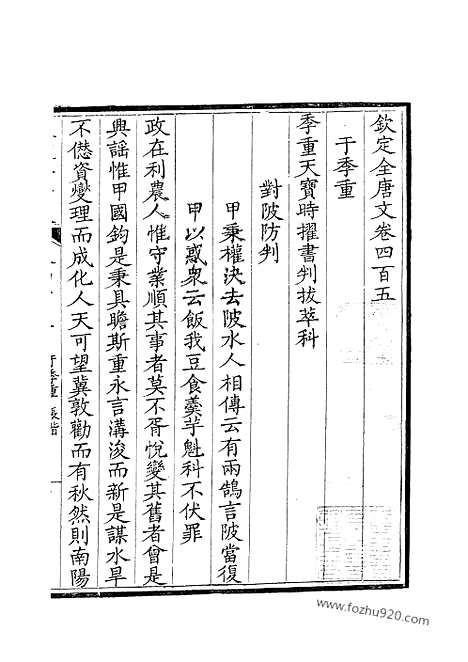 欽定全唐文卷四百五
于季重
季重天寶時擢書判拔萃科
對陂防判
甲秉權決去陂水人相傳云有兩鵠言陂當復
甲以惑衆云飯我豆食羹芋魁科不伏罪
政在利農人惟守業順其事者莫不胥悅變其舊者曾是
興謡惟甲國鈞是秉具瞻斯重永言溝浚而新是謀水旱
不僭資爕理而成化人天可望冀敦勸而有秋然則南陽
www.fozhu920.com